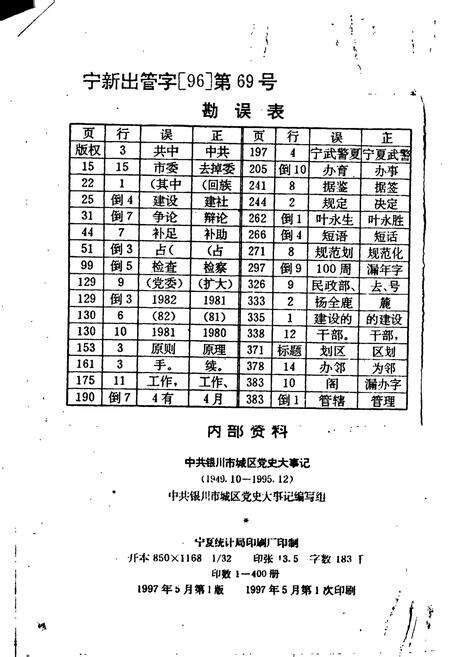 宁新出管字[96]第69号
勘误表
页 行 误 正 页 行 误 正
版权 3 共中 中共 197 4 宁武警夏 宁夏武警
15 15 市委 去掉委 205 倒10 办育 办事
22 1 (其中 (回族 241 8 据鉴 据签
25 倒4 建设 建社 244 2 规定 决定
31 倒7 争论 辩论 262 倒1 叶永生 叶永胜
44 7 补足 补助 266 倒4 短语 短话
51 倒3 占( (占 271 8 规范划 规范化
99 倒5 检查 检察 297 倒9 100周 漏年字
129 9 (党委) (扩大) 326 9 民政部、 去、号
129 倒3 1982 1981 333 2 杨全鹿 麓
130 6 (82) (81) 335 1 建设的 的建设
130 10 1981 1980 338 12 干部。 干部,
153 3 原则 原理 371 标题 划区 区划
161 3 手。 续。 378 14 办邻 为邻
175 11 工作, 工作、 383 10 阁 漏办字
190 倒7 4有 4月 383 倒1 管辖 管理
内部资料
中共银川市城区党史大事记
(1949.10—1995.12)
中共银川市城区党史大事记编写组
宁夏统计局印刷厂印制
开本850×1168 1/32 印张13.5 字数183千
印数1—400册
1997年5月第1版 1997年5月第1次印刷